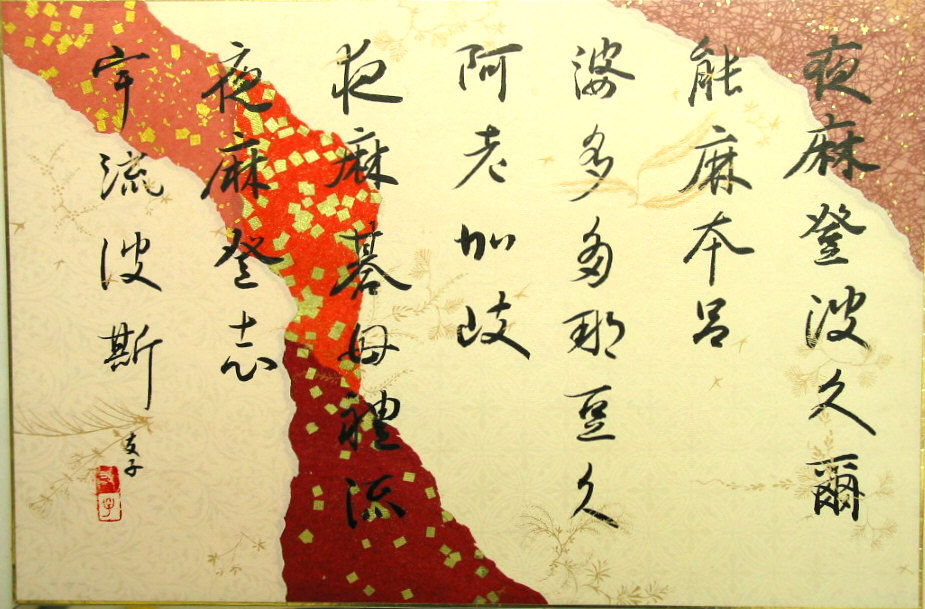 夜麻登波久爾
能麻本呂
婆多多那豆久
阿袁加岐
夜麻碁母禮流
夜麻登志
宇流波斯
友子